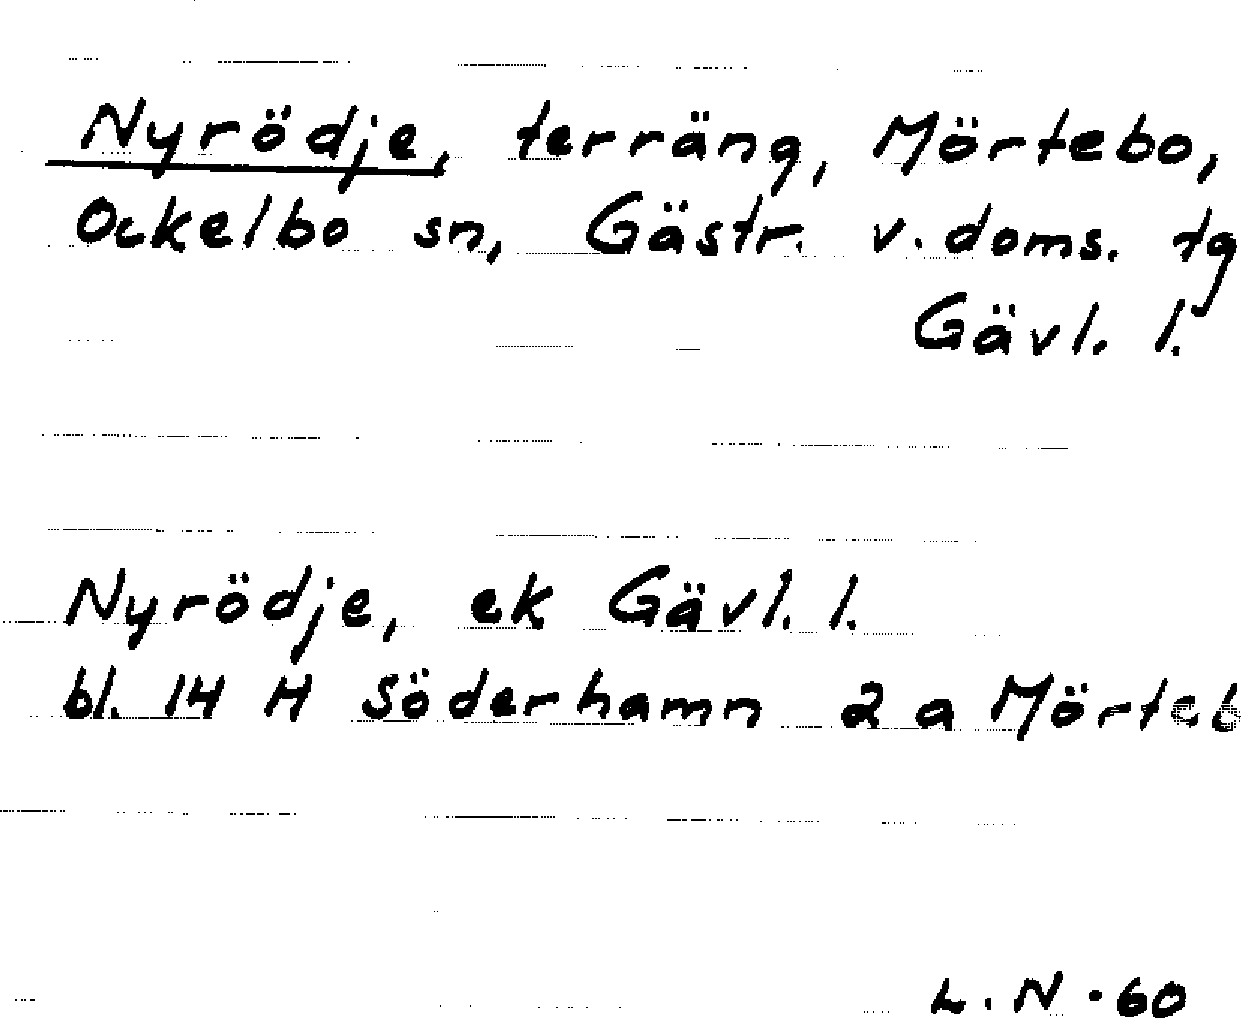 Nyrödje, terräng, Mörtebo,
Ockelbo sn, Gästr. v. doms. tg
Gävl. l.
Nyrödje, ek Gävl. l.
bl. 14 H Söderhamn 2 a Mörteb
L. N. 60